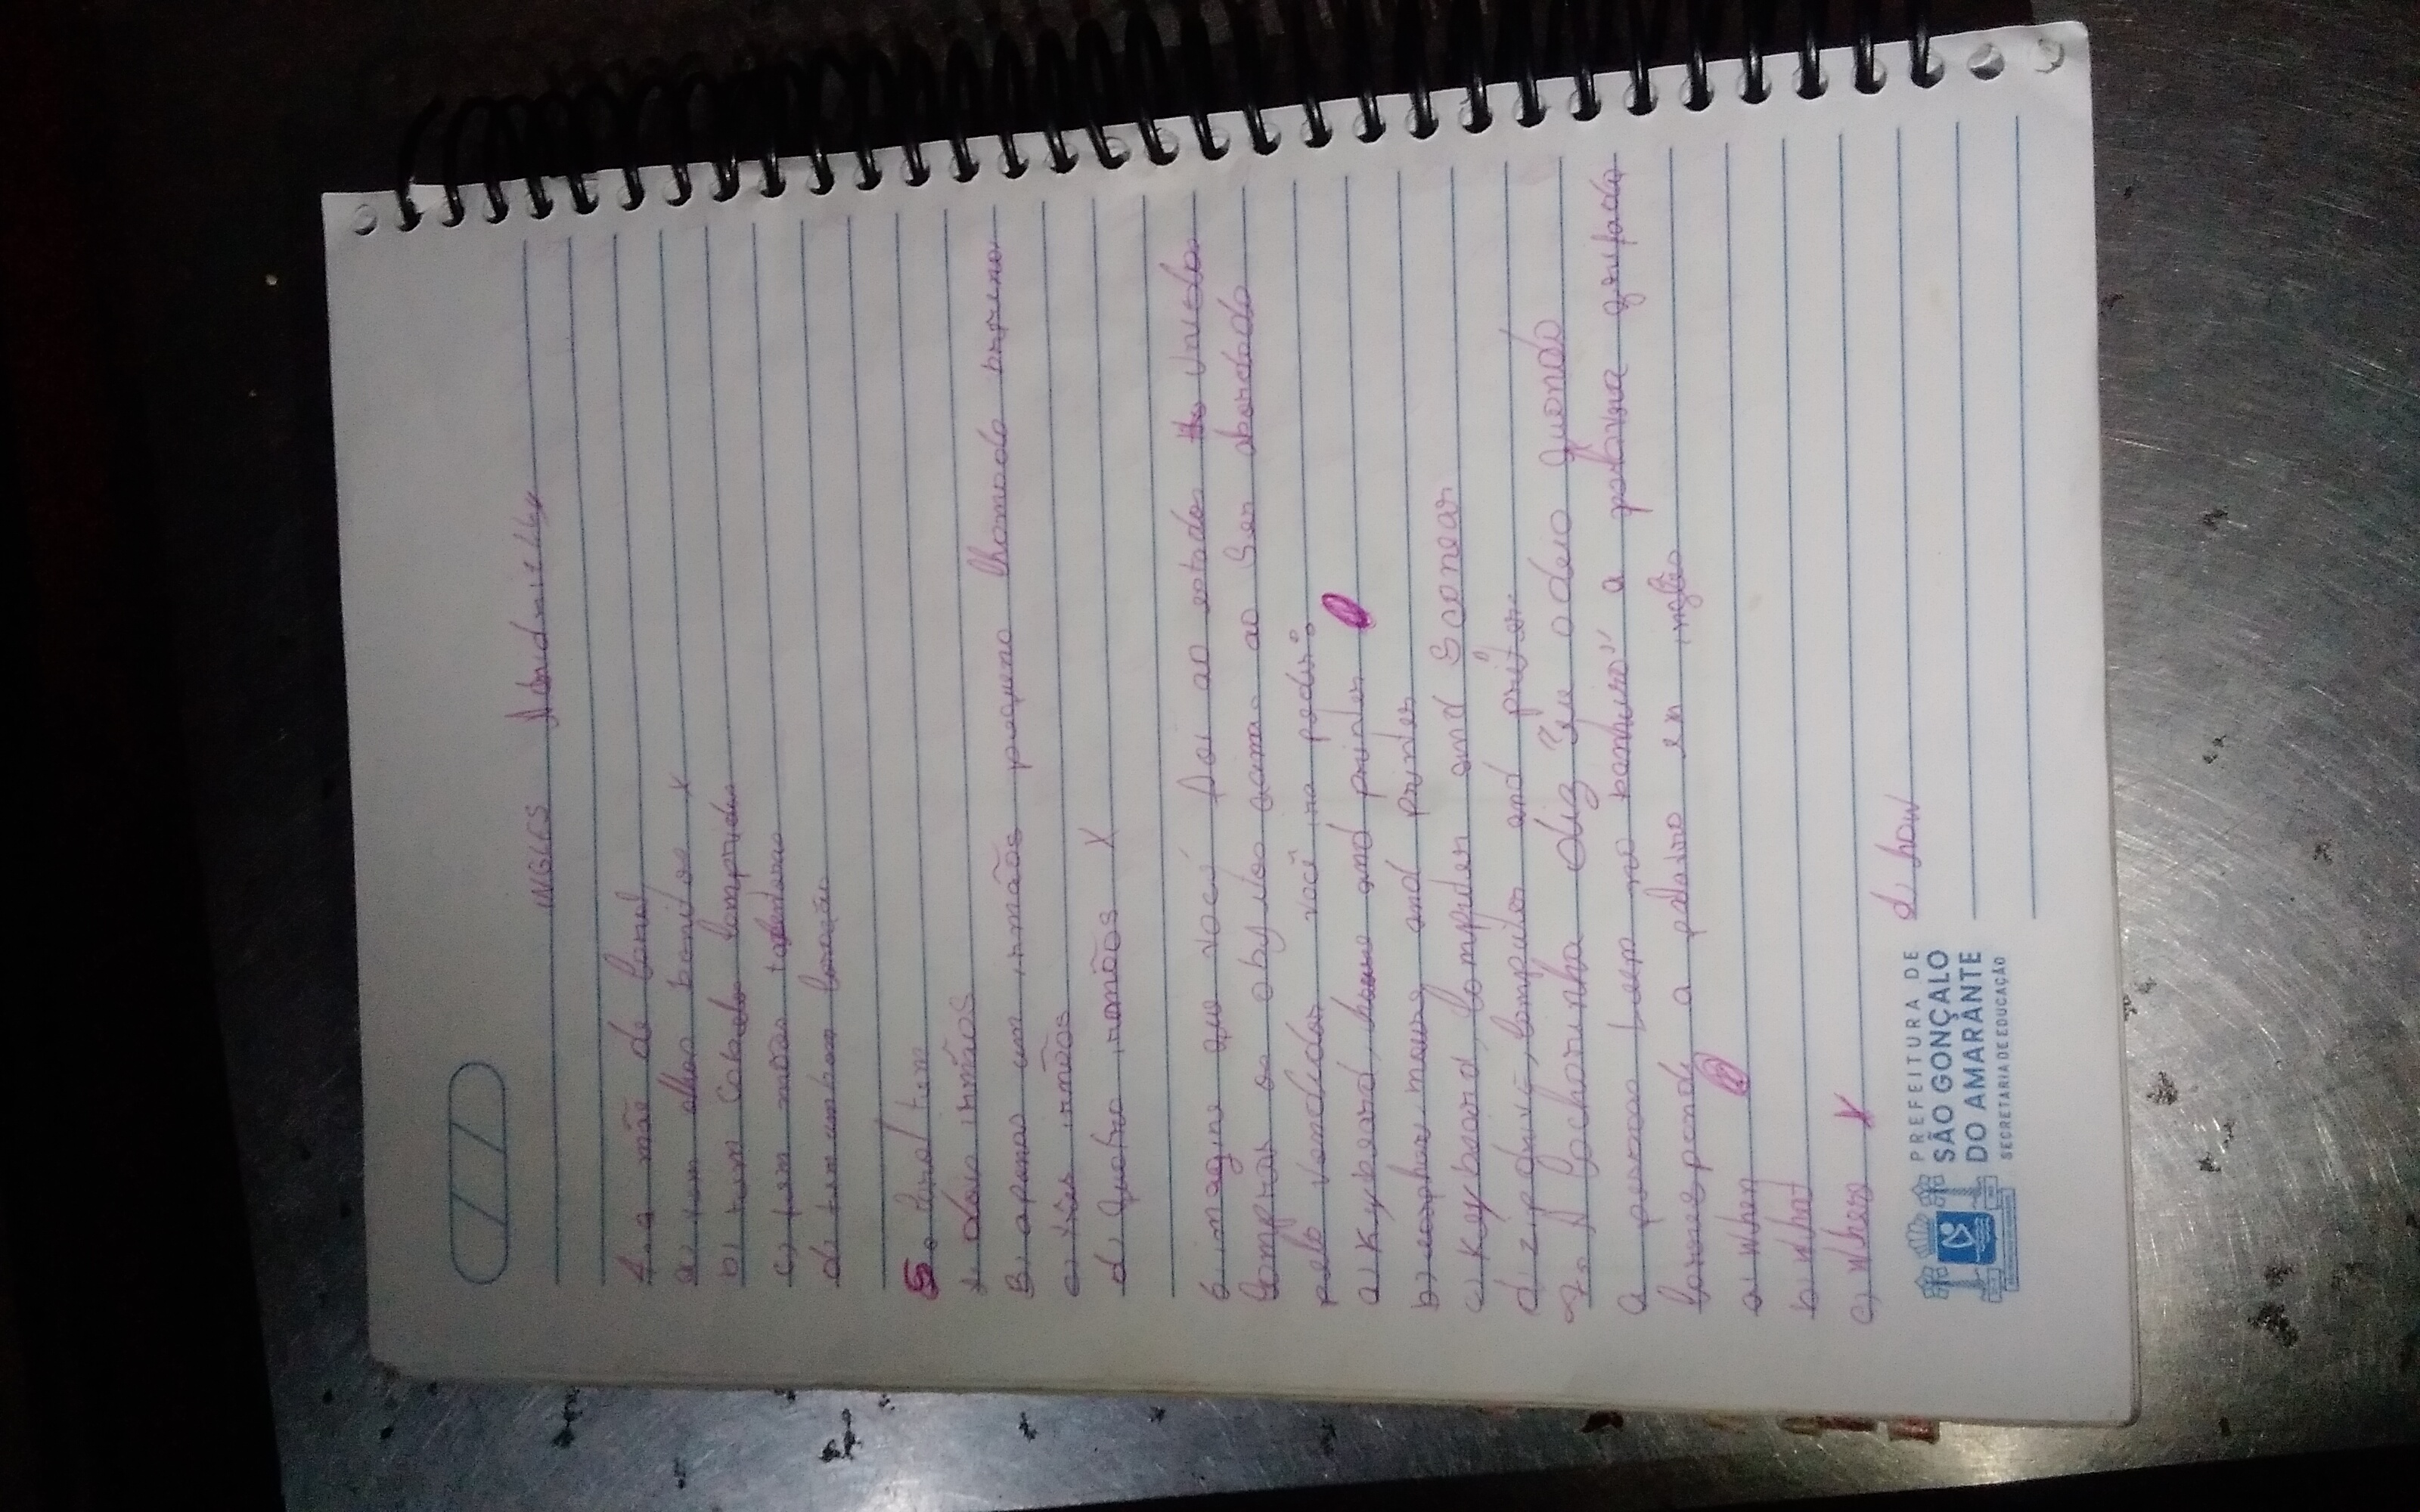 INGLES
4. a mãe de Carol
a) tem olhos bonitos X
b) tem Cabelos Compridos
c) tem mãos talentosas
d) tem um bom Coração
5. Carol tem
A. dois irmãos
B) apenas um irmãos pequeno Chamado
c) três irmãos
d) Quatro irmãos X
6. imagine que você foi ao estados Unidos
Comprar os objetos acima. ao Ser abordado
pelo Vendedor você ira pedir:
a) Keyboard, and printer
b) mouse and printer
c) Keyboard, Computer and Sconear
d) zip drive, Computer and
7. A Cachorrinha diz "Eu odeio quando
a pessoas banheiro" a palavra grifada
Corresponde a palavra em inglês
a) When
b) What
c) Where X
d) how
PREFEITURA DE
SÃO GONÇALO
DO AMARANTE
SECRETARIA DE EDUCAÇÃO